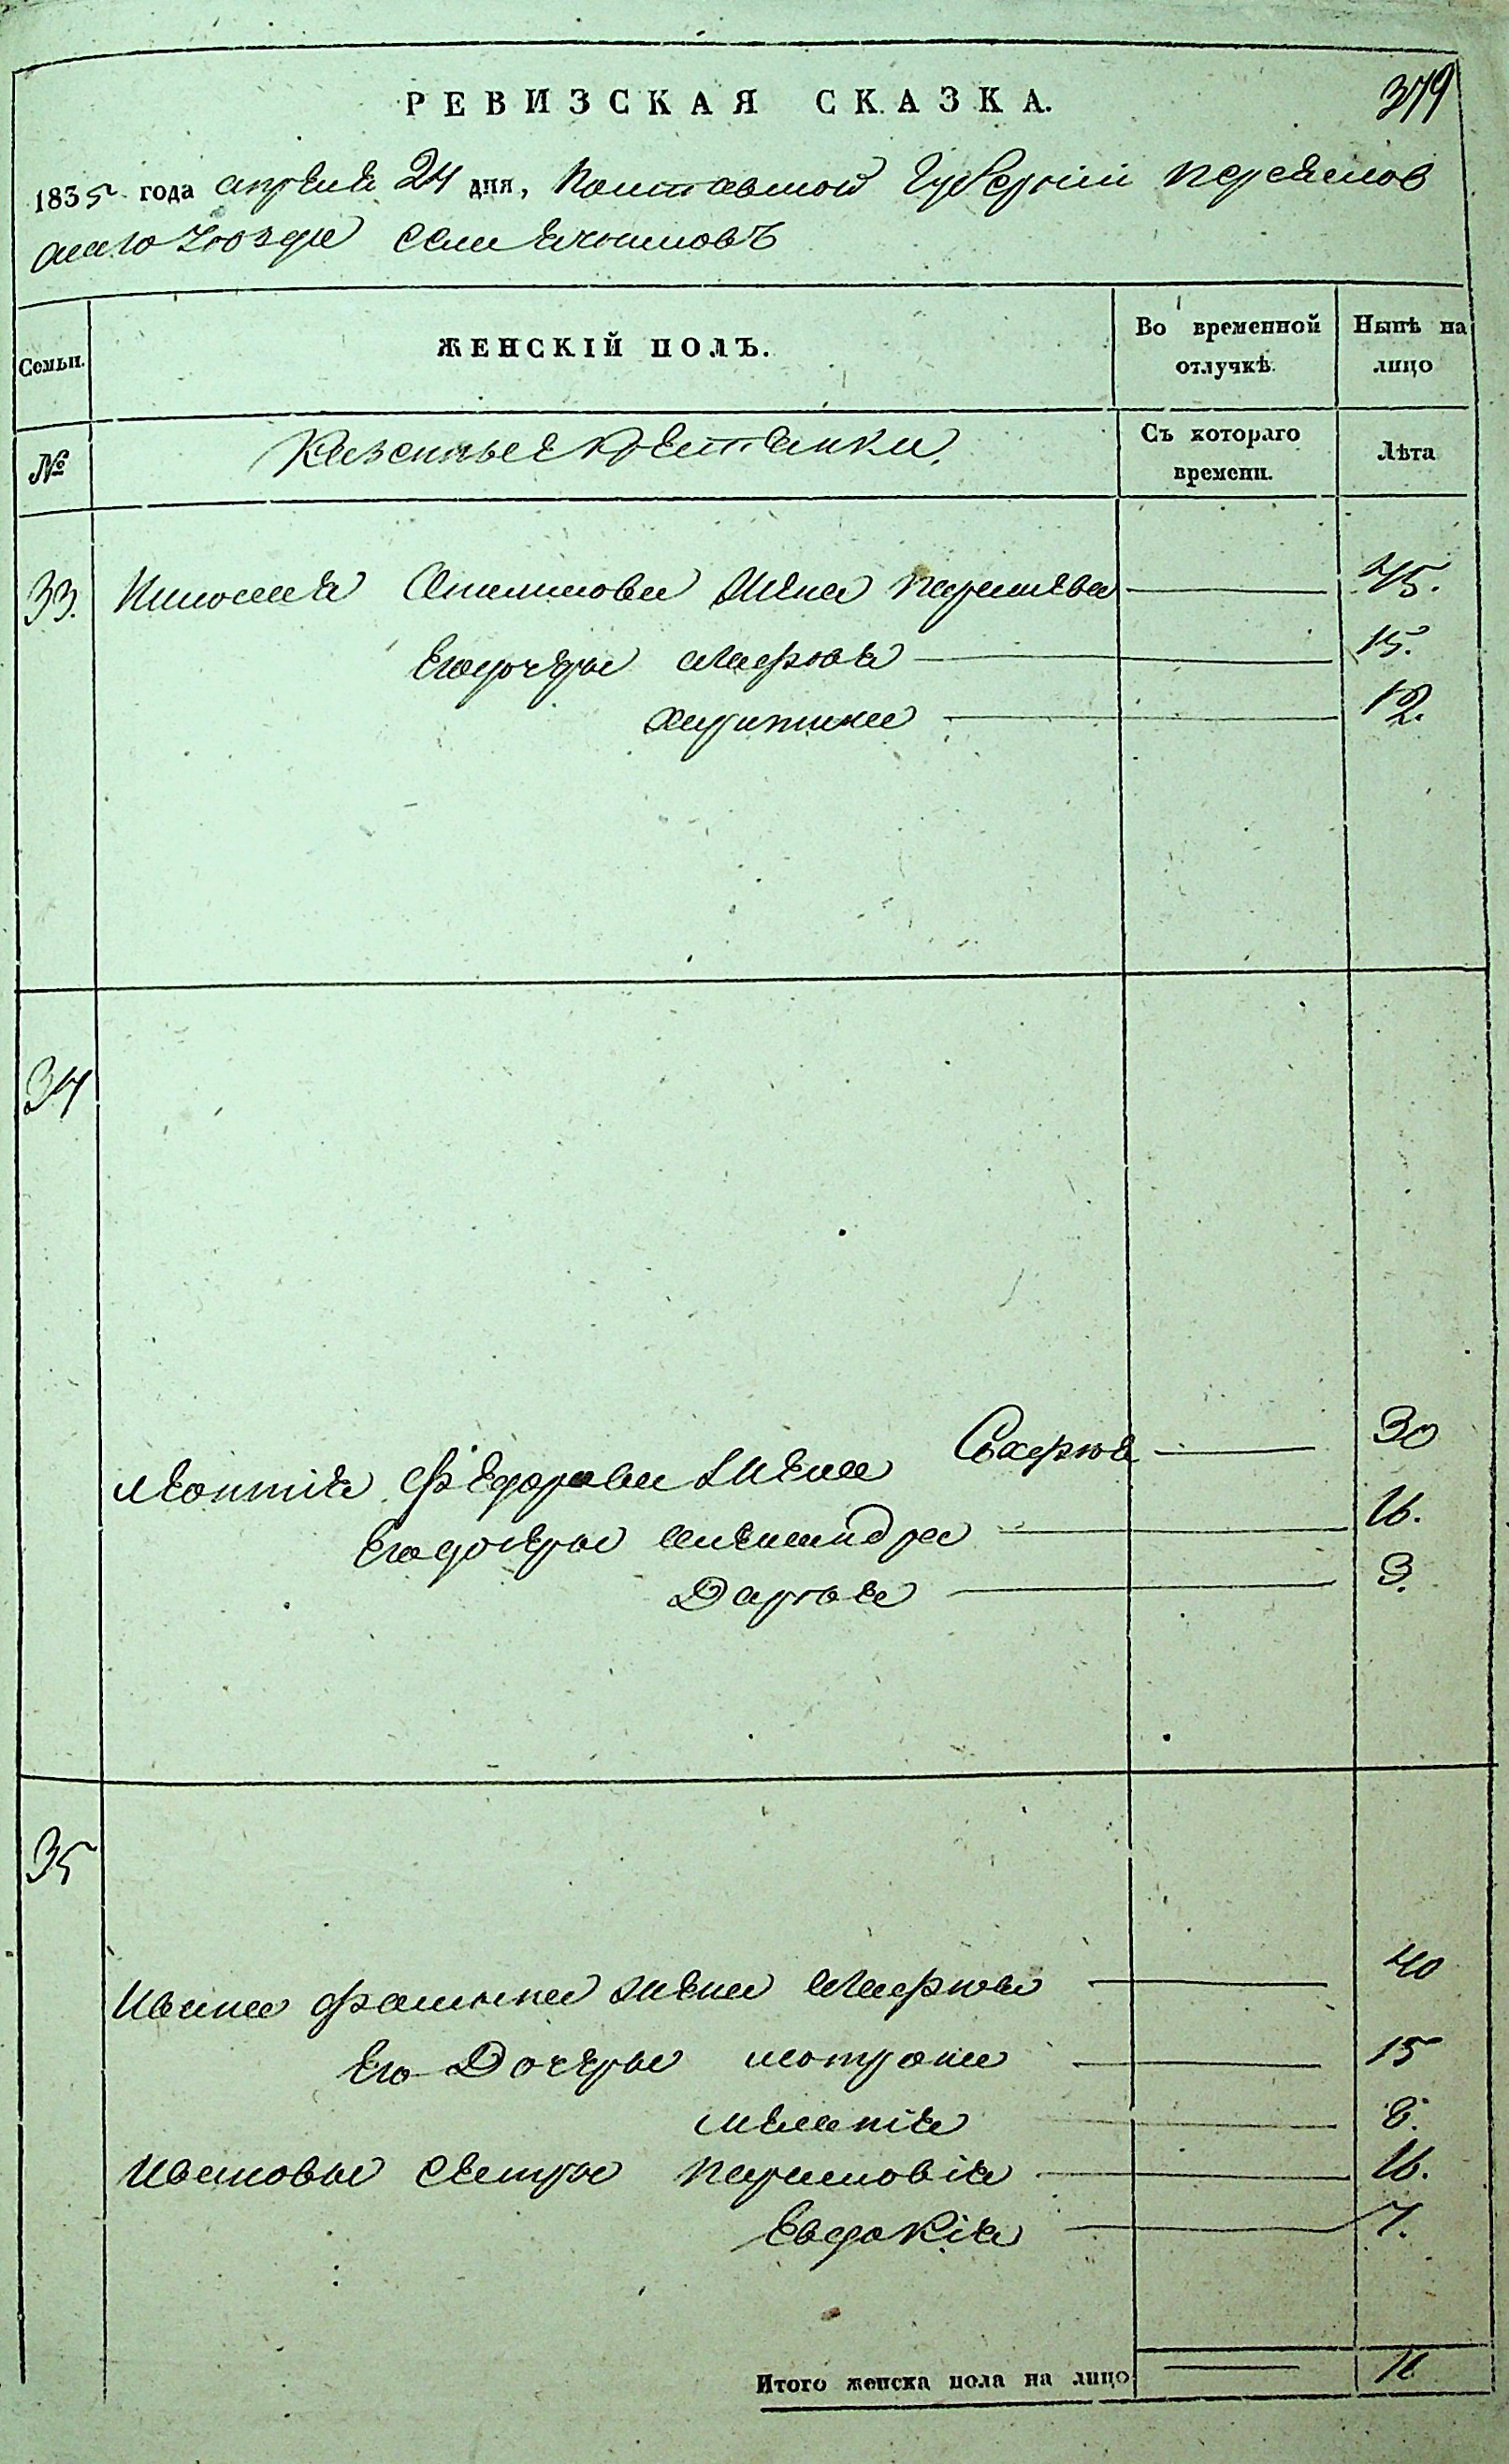 РЕВИЗСКАЯ СКАЗКА.
379
1835 года апреля 24 дня, Полтавской Губернии переяслов
скаго уезда села
Семьи.
ЖЕНСКІЙ ПОЛЪ.
Во временной отлучкѣ.
Нынѣ на лицо
№
Казенные крестянки.
Съ котораго времени.
Лѣта
33. Николая жена 45.
Егодочери марфа 15.
харитина 12.
34
Леонтия Федорова жена Софія 30
Егодочери александра 16.
Дария 3.
35
Ивана жена марфа 40
Его Дочери мотрона 15
меланія 8.
Ивановы сестры парасковія 16.
Евдокія 7.
Итого женска пола на лицо 11